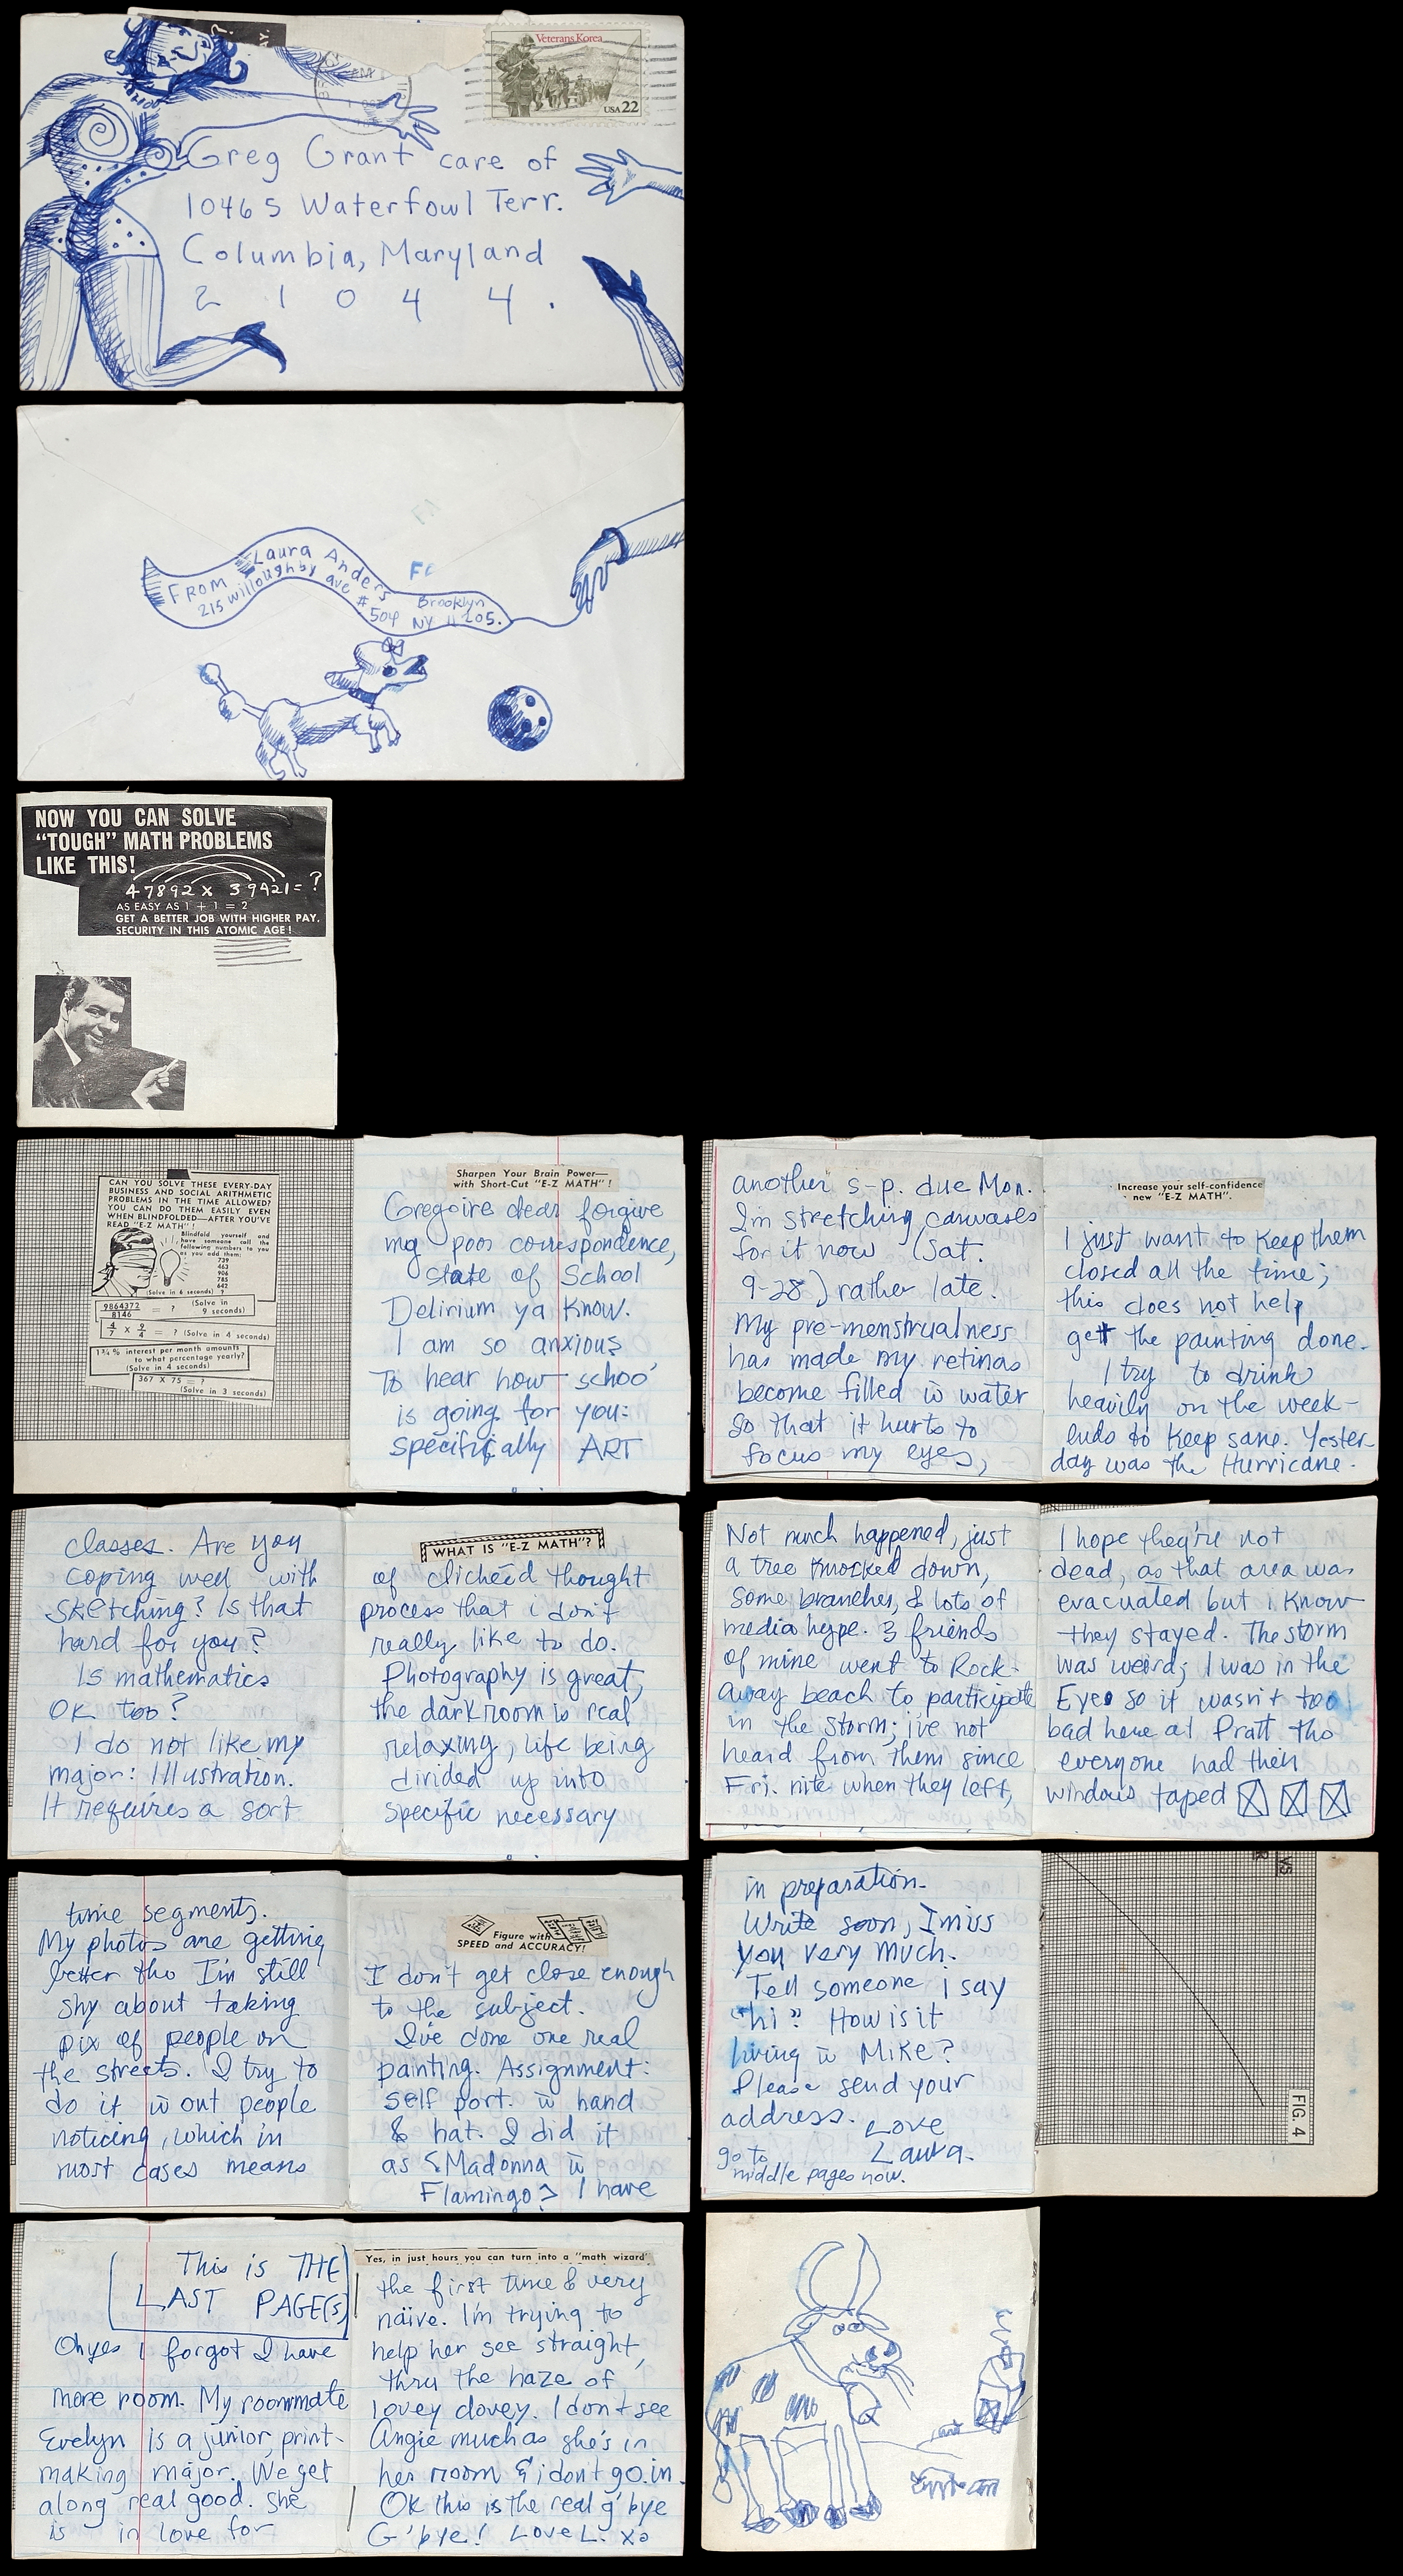 Veterans Korea
USA 22
Greg Grant care of
10465 Waterfowl Terr.
Columbia, Maryland
2 1 0 4 4 .
FROM Laura Anders
215 Willoughby ave #504
Brooklyn
NY 11205.
NOW YOU CAN SOLVE
“TOUGH” MATH PROBLEMS
LIKE THIS!
47892 x 39421 = ?
AS EASY AS 1 + 1 = 2
GET A BETTER JOB WITH HIGHER PAY.
SECURITY IN THIS ATOMIC AGE!
CAN YOU SOLVE THESE EVERY-DAY
BUSINESS AND SOCIAL ARITHMETIC
PROBLEMS IN THE TIME ALLOWED?
YOU CAN DO THEM EASILY EVEN
WHEN BLINDFOLDED—AFTER YOU'VE
READ "E-Z MATH"!
Blindfold yourself and
have someone call the
following numbers to you
as you add them.
739
463
906
785
642
(Solve in 6 seconds) ?
9864372
8146
= ? (Solve in
9 seconds)
4/7 x 9/4 = ? (Solve in 4 seconds)
1¾% interest per month amounts
to what percentage yearly?
(Solve in 4 seconds)
367 X 75 = ?
(Solve in 3 seconds)
Sharpen Your Brain Power—
with Short-Cut "E-Z MATH"!
Gregoire dear forgive
my poor correspondence,
state of School
Delirium ya know.
I am so anxious
to hear how school
is going for you:
specifically ART
classes. Are you
coping well with
sketching? Is that
hard for you?
Is mathematics
OK too?
I do not like my
major: Illustration.
It requires a sort
WHAT IS "E-Z MATH"?
of clichéed thought
process that i don't
really like to do.
Photography is great,
the darkroom is real
relaxing, life being
divided up into
specific necessary
time segments.
My photos are getting
better tho I'm still
shy about taking
pix of people on
the streets. I try to
do it w out people
noticing, which in
most cases means
Figure with
SPEED and ACCURACY!
I don't get close enough
to the subject.
I've done one real
painting. Assignment:
self port. w hand
& hat. I did it
as "Madonna w
Flamingo" I have
another s-p. due Mon.
I'm stretching canvases
for it now (Sat.
9-28) rather late.
My pre-menstrualness
has made my retinas
become filled w water
so that it hurts to
focus my eyes,
Increase your self-confidence
new "E-Z MATH".
I just want to keep them
closed all the time;
this does not help
get the painting done.
I try to drink
heavily on the week-
ends to keep sane. Yester-
day was the Hurricane.
Not much happened, just
a tree knocked down,
some branches, & lots of
media hype. 3 friends
of mine went to Rock-
away beach to participate
in the storm; i've not
heard from them since
Fri. nite when they left,
I hope they're not
dead, as that area was
evacuated but i know
they stayed. The storm
was weird; I was in the
Eye so it wasn't too
bad here at Pratt tho
everyone had their
windows taped
in preparation.
Write soon, I miss
you very much.
Tell someone i say
"hi" How is it
living w Mike?
Please send your
address. Love
Laura.
go to
middle pages now.
VS
FIG. 4
This is THE
LAST PAGE(S)
Oh yes I forgot I have
more room. My roommate
Evelyn is a junior, print-
making major. We get
along real good. She
is in love for
Yes, in just hours you can turn into a "math wizard'
the first time & very
naive. I'm trying to
help her see straight,
thru the haze of
lovey dovey. I don't see
Angie much as she's in
her room & i don't go in.
OK this is the real g'bye
G'bye! Love L. xo